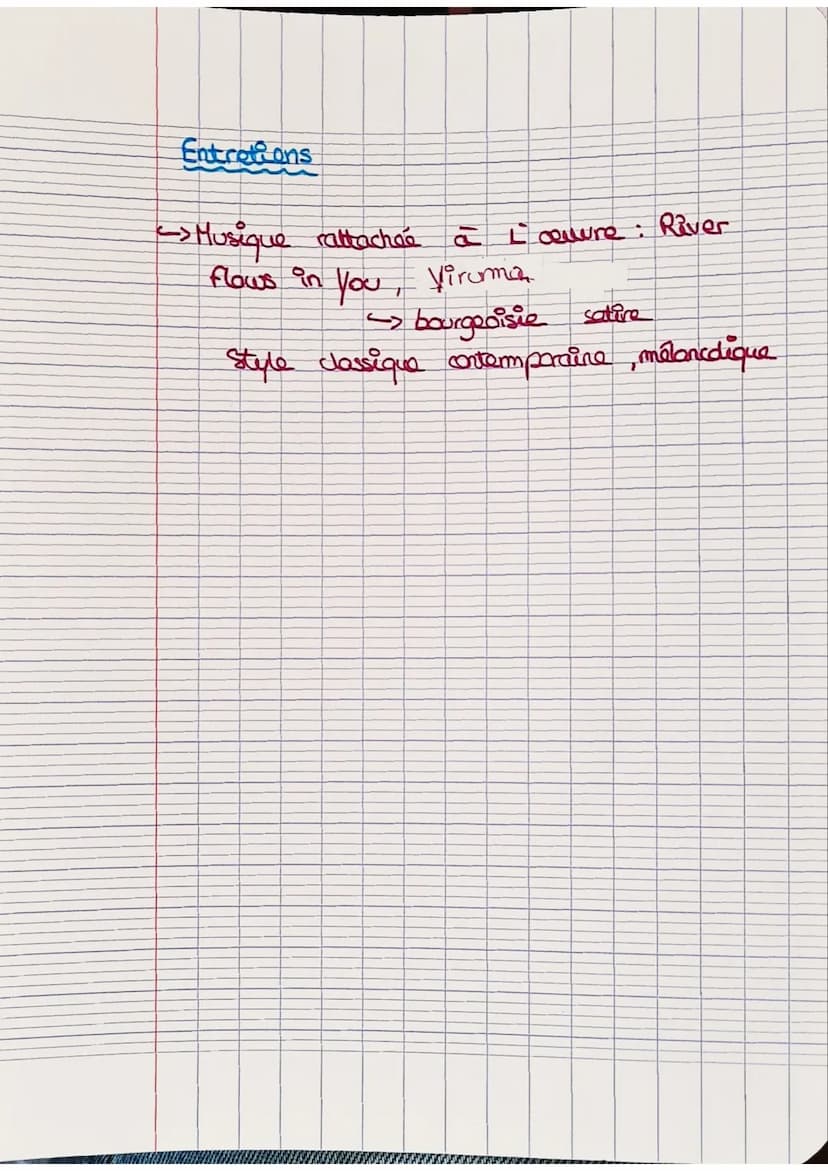 Entretiens
↪Musique rattachée à L'œuvre : River
flows in You, Yiruma
↪ bourgeoisie satire
Style classique contemporaine, mélancolique